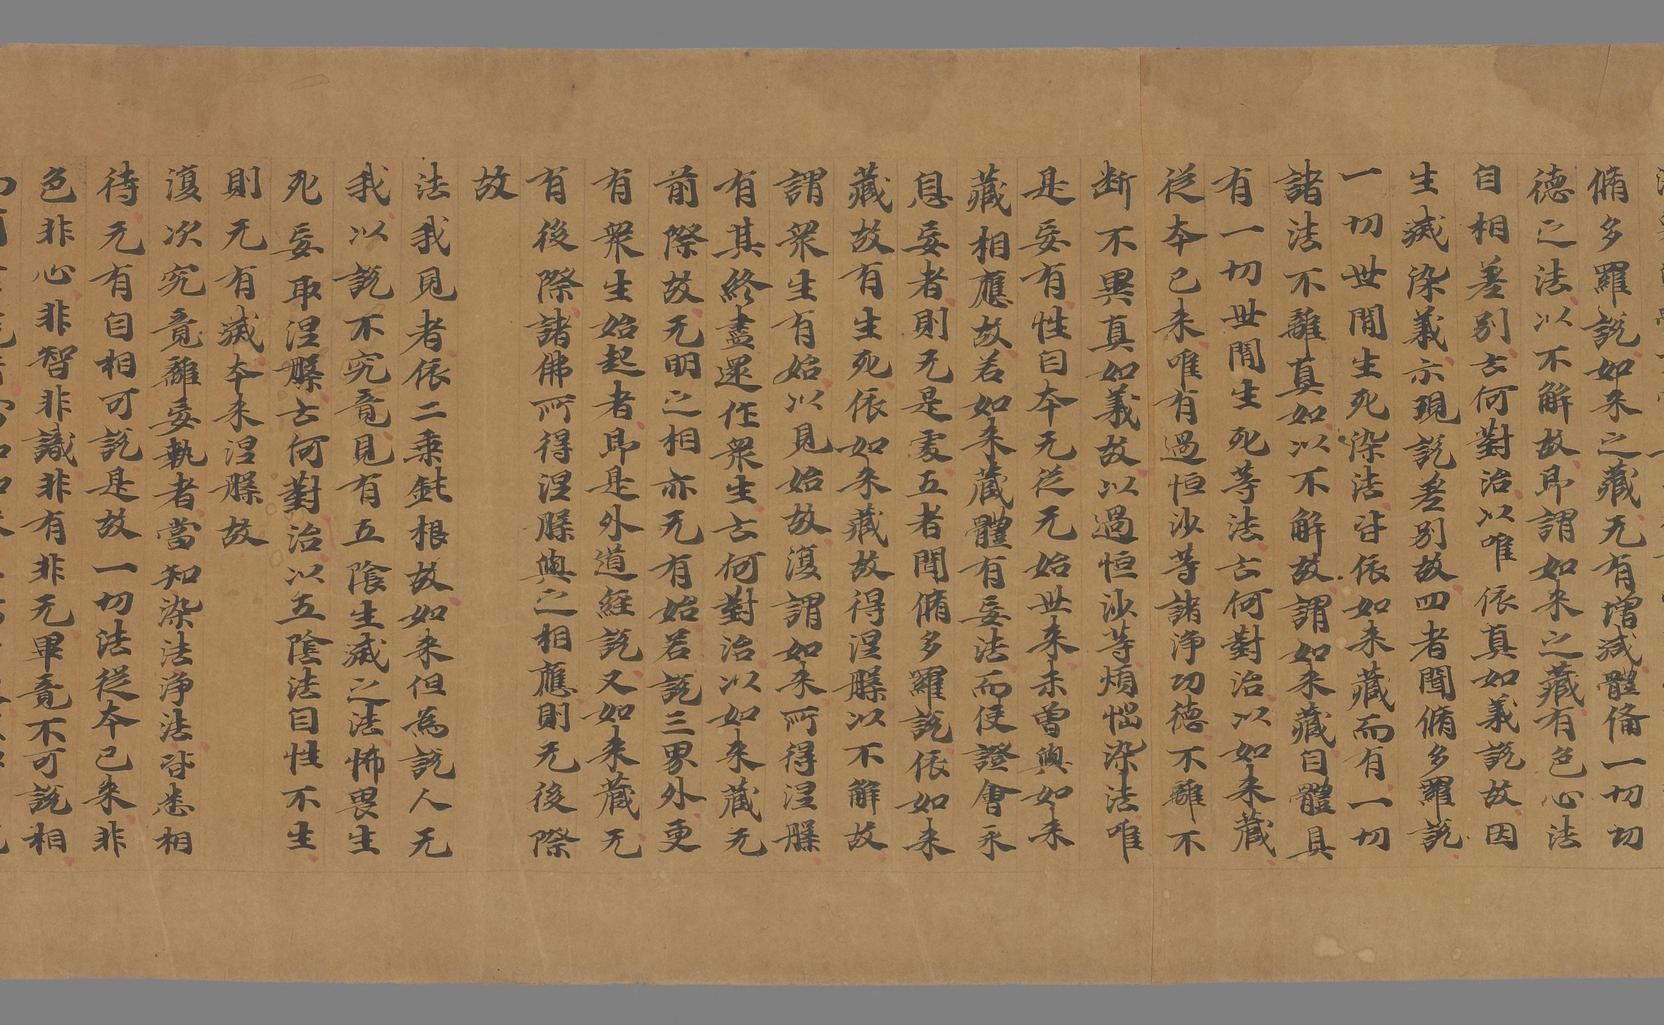 脩多羅說如来之藏无有増減體俻一切切
德之法以不解故即謂如来之藏有色心法
自相差别云何對治以唯依真如義說故因
生滅染義示現說差别故四者聞脩多羅說
一切世閒生死染法皆依如来藏而有一切
諸法不離真如以不解故謂如来藏自體具
有一切世閒生死等法云何對治以如来藏
従本已来唯有過恒沙等諸浄功德不離不
断不異真如義故以過恒沙等煩惱染法唯
是妄有性自本无従无始世来未曾與如来
藏相應故若如来藏體有妄法而使證會永
息妄者則无是處五者聞脩多羅說依如来
藏故有生死依如来藏故得涅槃以不解故
謂衆生有始以見始故復謂如来所得涅槃
有其終盡還作衆生云何對治以如来藏无
前際故无明之相亦无有始若說三界外更
有衆生始起者即是外道経說又如来蔵无
有後際諸佛所得涅槃與之相應則无後際
故
法我見者依二乗鈍根故如来但為說人无
我以說不究竟見有五陰生滅之法怖畏生
死妄取涅槃云何對治以五陰法自性不生
則无有滅本来涅槃故
復次究竟離妄執者當知染法浄法皆悉相
待无有自相可說是故一切法従本已来非
色非心非智非識非有非无畢竟不可說相